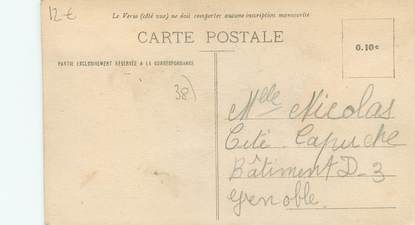 12€
Le Verso (côté vue) ne doit comporter aucune inscription manuscrite
CARTE POSTALE
0.10c
PARTIE EXCLUSIVEMENT RÉSERVÉE A LA CORRESPONDANCE
38)
Mlle Nicolas
Cité Capuche
Bâtiment D-3
Grenoble.